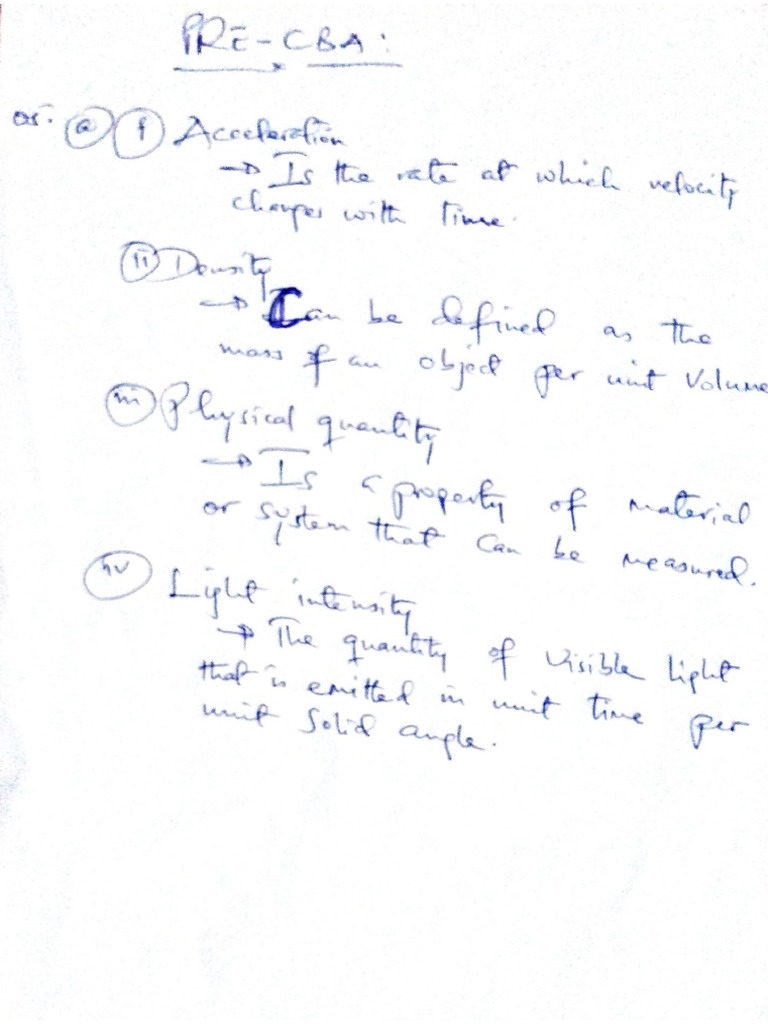 PRE-CBA:
os. (a) (i) Acceleration
→ Is the rate at which velocity
changes with time.
(ii) Density
→ Can be defined as the
mass of an object per unit Volume
(iii) Physical quantity
→ Is a property of material
or system that can be measured.
(iv) Light intensity
→ The quantity of visible light
that is emitted in unit time per
unit solid angle.